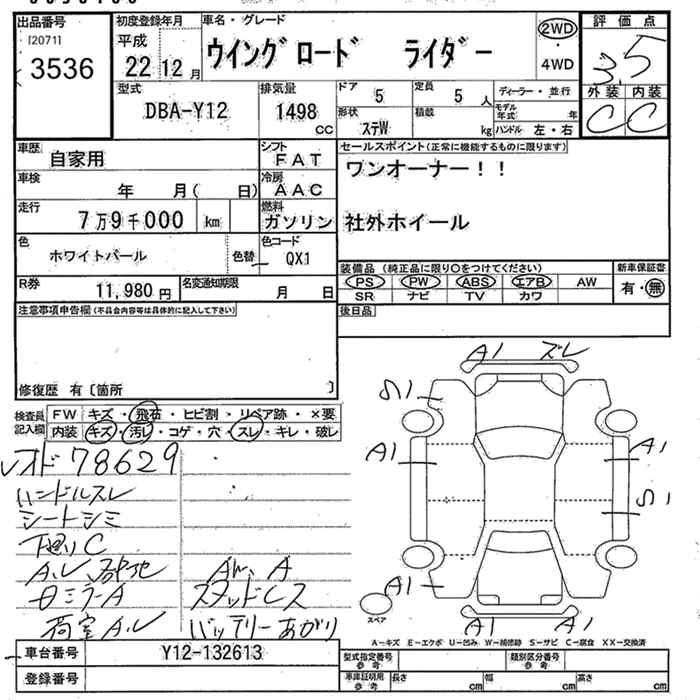 出品番号
[2071]
3536
初度登録年月
平成
22 12 月
車名・グレード
ウイングロード ライダー
2WD
・
4WD
評価点
3.5
外装 内装
C C
型式
DBA-Y12
排気量
1498
cc
ドア
5
定員
5 人
形状
ステW
積載
kg
ディーラー・並行
モデル年式 年
ハンドル 左・右
車歴
自家用
シフト
FAT
車検
年 月( 日)
冷房
AAC
走行
7万9千000 km
燃料
ガソリン
色
ホワイトパール
色替
色コード
QX1
R券
11,980 円
名変通知期限
月 日
セールスポイント(正常に機能するものに限ります)
ワンオーナー!!
社外ホイール
装備品(純正品に限り○をつけてください)
PS PW ABS エアB AW
SR ナビ TV カワ
新車保証書
有・無
後日品
注意事項申告欄(不具合内容等は具体的に記入して下さい)
修復歴 有〔箇所 〕
検査員
記入欄
FW キズ・飛石・ヒビ割・リペア跡・×要
内装 キズ・汚レ・コゲ・穴・スレ・キレ・破レ
レオド 78629
ハンドルスレ
シートシミ
下廻りC
スタッドレス
バッテリーあがり
A1 ズレ
A1
A1
A1
A1
A1
スペア
A-キズ E-エクボ U-凹み W-補修跡 S-サビ C-腐食 XX-交換済
車台番号
Y12-132613
登録番号
型式指定番号
参考
類別区分番号
参考
車庫証明用
参考
長さ cm
幅 cm
高さ cm